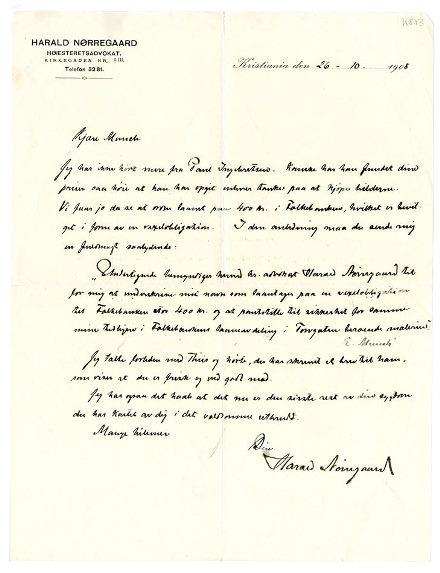 K813
HARALD NØRREGAARD
HØIESTERETSADVOKAT.
KIRKEGADEN NR.
Telefon 5281.
Kristiania den 26 - 10 - 1908
Kjære Munch
Jeg har inne hört mere fra Paul Ingebretsen. Kanske har han fundet dine
priser saa höie at han har opgit enhver tanke paa at kjøpe billederne.
Vi faar jo da se at ordne laanet paa 400 kr. i Folkebanken, hvilket er bevil-
get i form av en vexelobligation. I den anledning maa du sende mig
en fuldmagt saalydende:
"Undertegnede bemyndiger herved hr. advokat Harald Nørregaard til
for mig at underskrive mit navn som laantager paa en vexelobligation
til Folkebanken stor 400 kr. og at pantsætte til sikkerhet for samme
mine i Folkebankens laaneavdeling i Torvgaten beroende malerier"
E. Munch
Jeg talte forleden med Thiis og hörte, du har skrevet et brev til ham,
som viser at du er frisk og ved godt mod.
Jeg har ogsaa det haab at det nu er den sidste rest av din sygdom
du har kastet av dig i det voldsomme utbrud.
Mange hilsener
Din
Harald Nørregaard